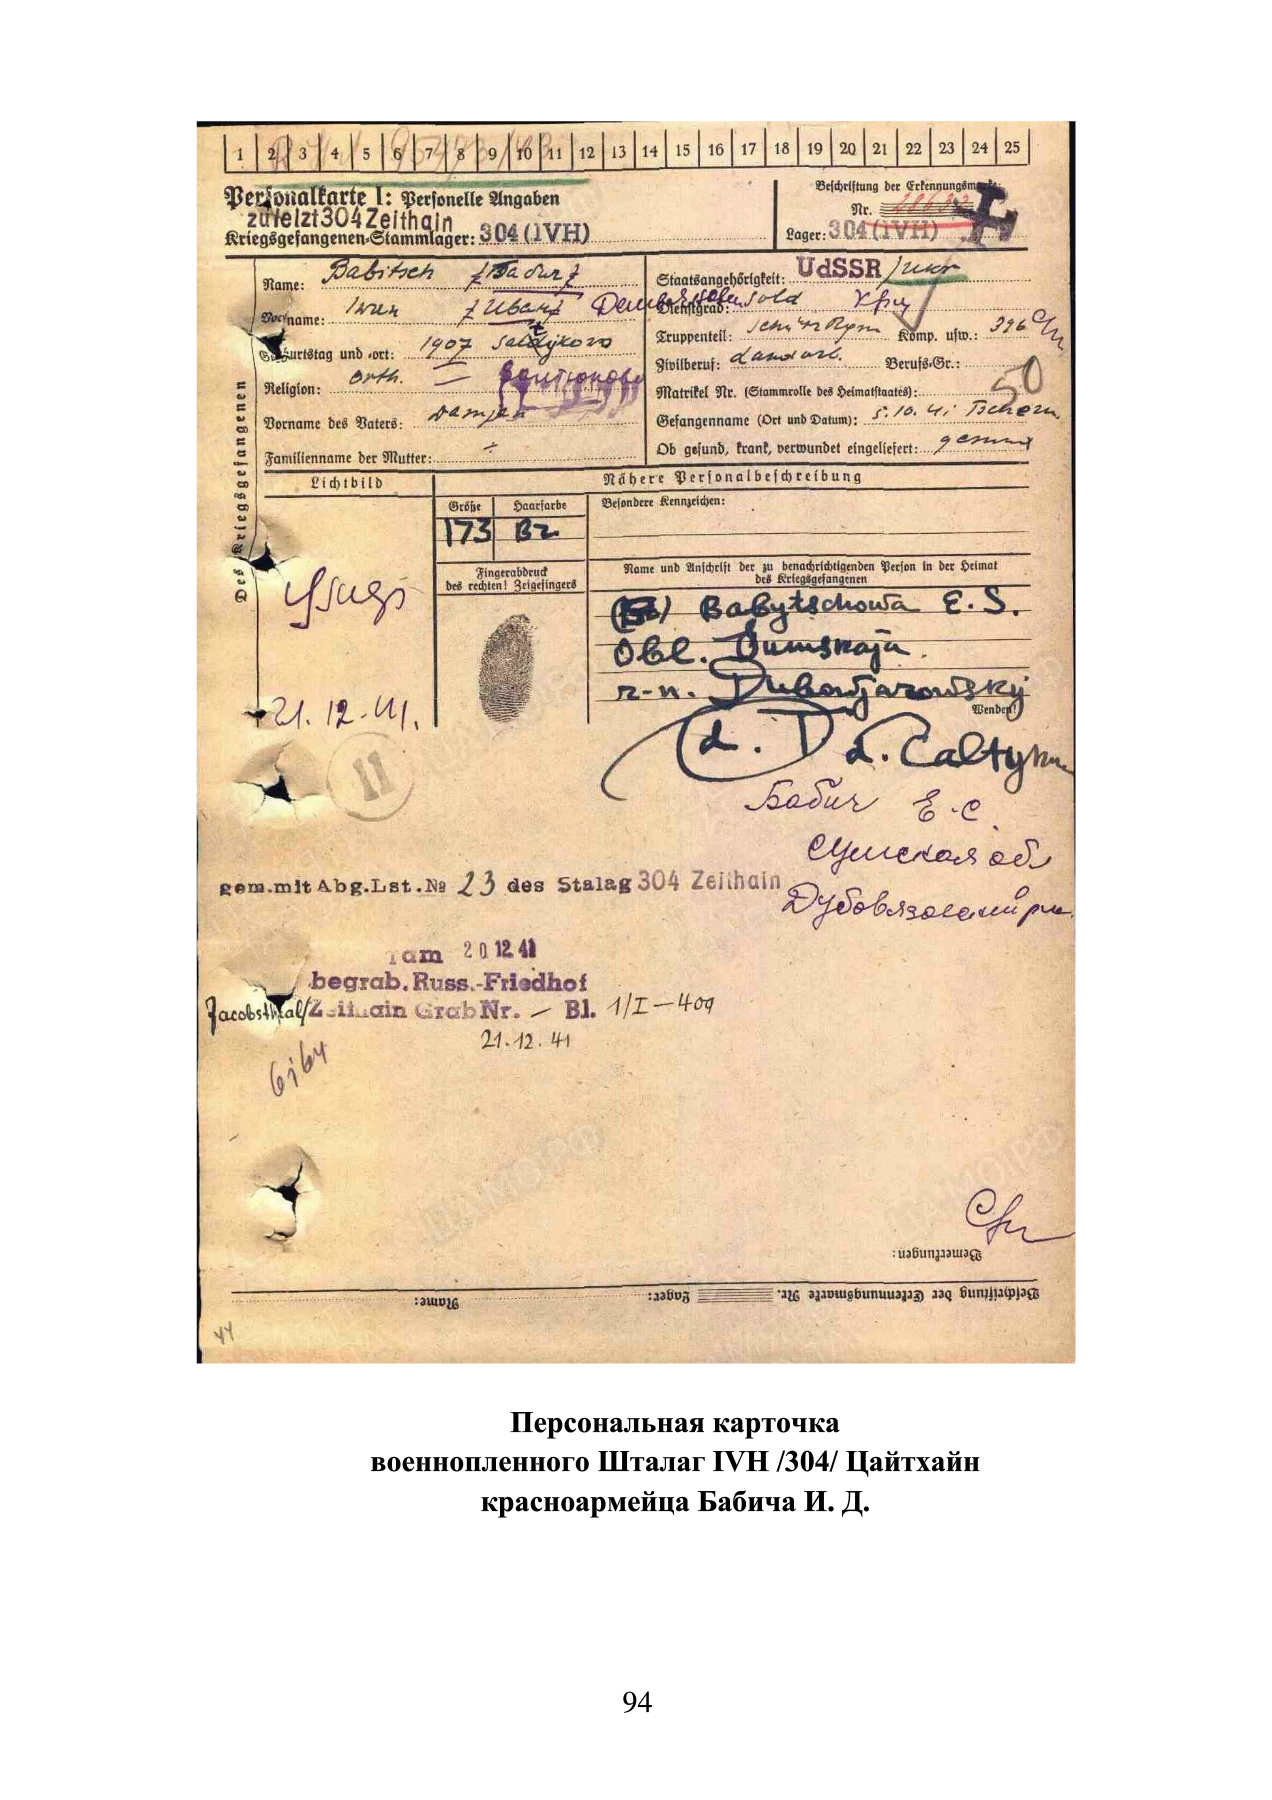 1 2 3 4 5 6 7 8 9 10 11 12 13 14 15 16 17 18 19 20 21 22 23 24 25
Personalkarte I: Personelle Angaben
zuletzt 304 Zeithain
Kriegsgefangenen-Stammlager: 304 (IVH)
Beschriftung der Erkennungsmarke
Nr.
Lager: 304 (IVH)
Des Kriegsgefangenen
Name: Babitsch
Vorname: Iwan
Geburtstag und -ort: 1907
Religion: Orth.
Vorname des Vaters: Damjan
Familienname der Mutter: ÷
Staatsangehörigkeit: UdSSR / Ukr
Dienstgrad: Sold
Truppenteil: Komp. usw.: 396
Zivilberuf: Landarb. Berufs-Gr.:
50
Matrikel Nr. (Stammrolle des Heimatstaates):
Gefangenname (Ort und Datum): 5.10.41 Tschern.
Ob gesund, krank, verwundet eingeliefert: gesund
Lichtbild
Nähere Personalbeschreibung
Größe Haarfarbe
173
Besondere Kennzeichen:
Fingerabdruck
des rechten! Zeigefingers
Name und Anschrift der zu benachrichtigenden Person in der Heimat
des Kriegsgefangenen
Babytschowa E. S.
Obl. Sumskaja.
r-n. Dubowjasowsky
Wenden!
21.12.41.
11
Бабич Е. С
Сумская об
Дубовязовский рн.
gem. mit Abg. Lst. № 23 des Stalag 304 Zeithain
am 20.12.41
begrab. Russ.-Friedhof
Jacobsthal/Zeithain Grab Nr. – Bl. 1/I – 409
21.12.41
Bemerkungen:
Beschriftung der Erkennungsmarke Nr. Lager: Name:
44
ЦАМО.РФ
ЦАМО.РФ
Персональная карточка
военнопленного Шталаг IVH /304/ Цайтхайн
красноармейца Бабича И. Д.
94